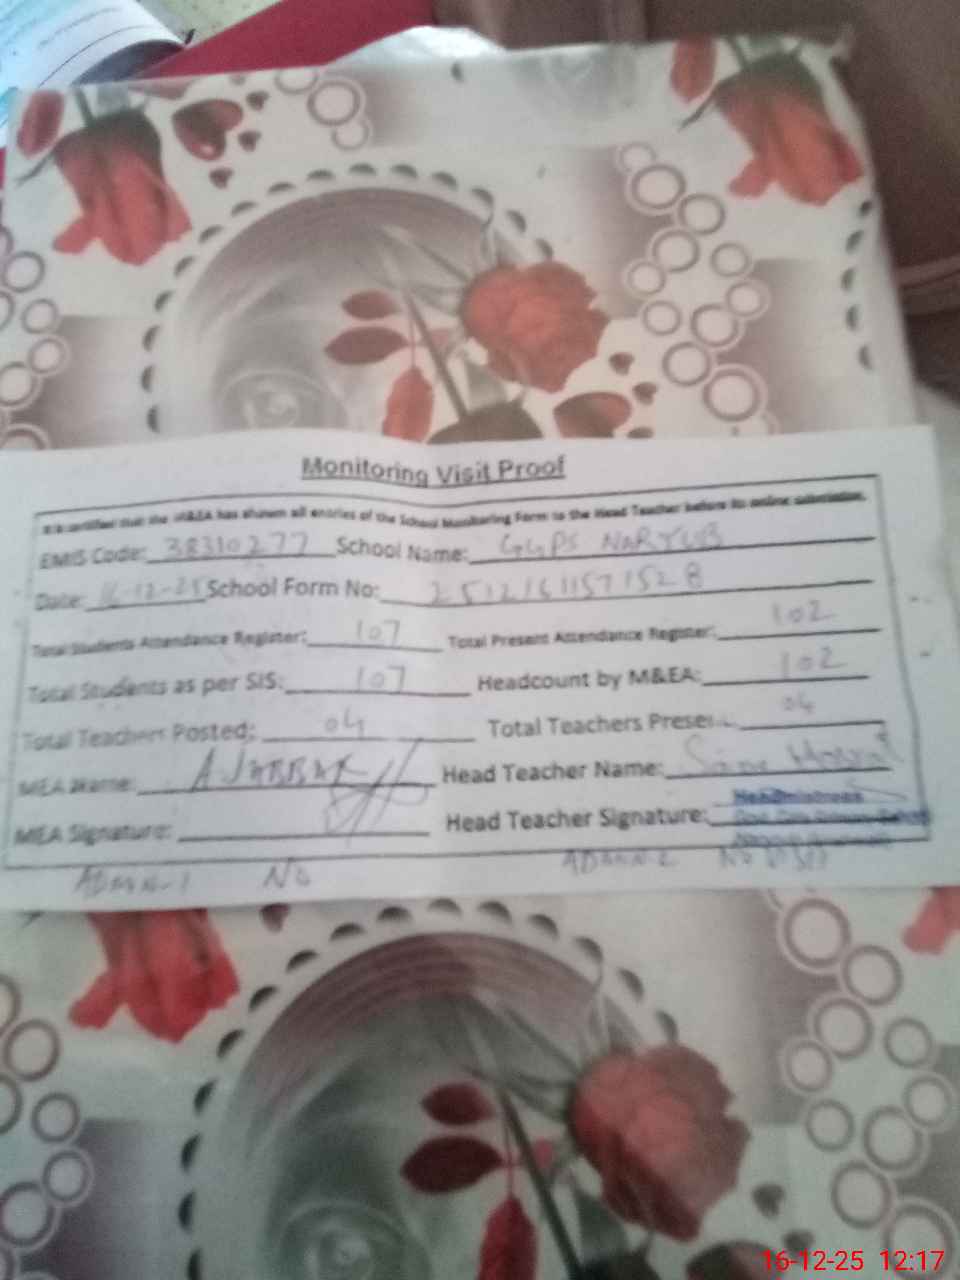 Monitoring Visit Proof
It is certified that the M&EA has shown all entries of the School Monitoring Form to the Head Teacher before its online submission.
EMIS Code: 38310277 School Name: GGPS NARYUB
Date: 16-12-25 School Form No: 25121611571528
Total Students Attendance Register: 107 Total Present Attendance Register: 102
Total Students as per SIS: 107 Headcount by M&EA: 102
Total Teachers Posted: 04 Total Teachers Present: 04
MEA Name: A. JABBAR Head Teacher Name:
MEA Signature: Head Teacher Signature: Headmistress
No No
16-12-25 12:17